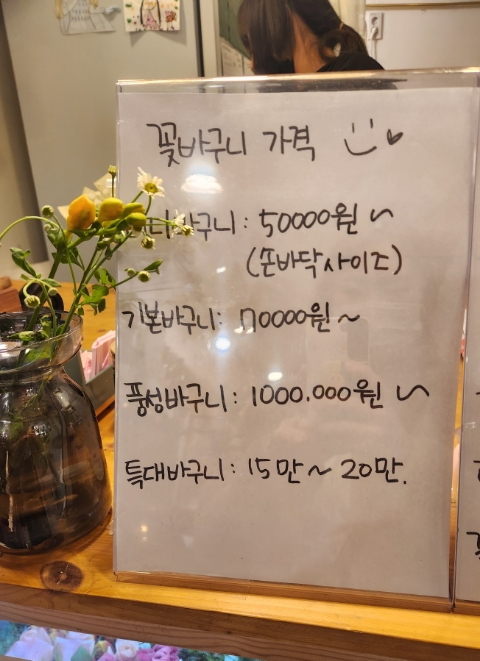 꽃바구니 가격
바구니: 50000원~
(손바닥사이즈)
기본바구니: 70000원~
풍성바구니: 1000.000원~
특대바구니: 15만~20만.